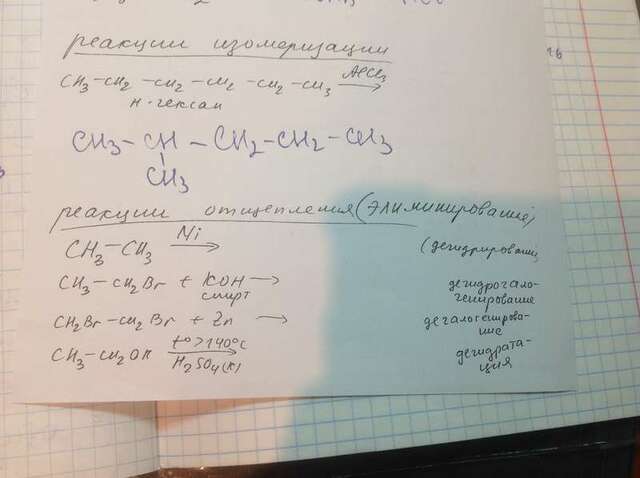 реакции изомеризации
CH3-CH2-CH2-CH2-CH2-CH3 AlCl3→
н-гексан
CH3-CH-CH2-CH2-CH3
CH3
реакции отщепления (элиминирование)
CH3-CH3 Ni→ (дегидрирование)
CH3-CH2Br + KOH → дегидрогало-
спирт генирование
CH2Br-CH2Br + Zn → дегалогенирова-
ние
CH3-CH2OH t°>140°C→ дегидрата-
H2SO4(к) ция